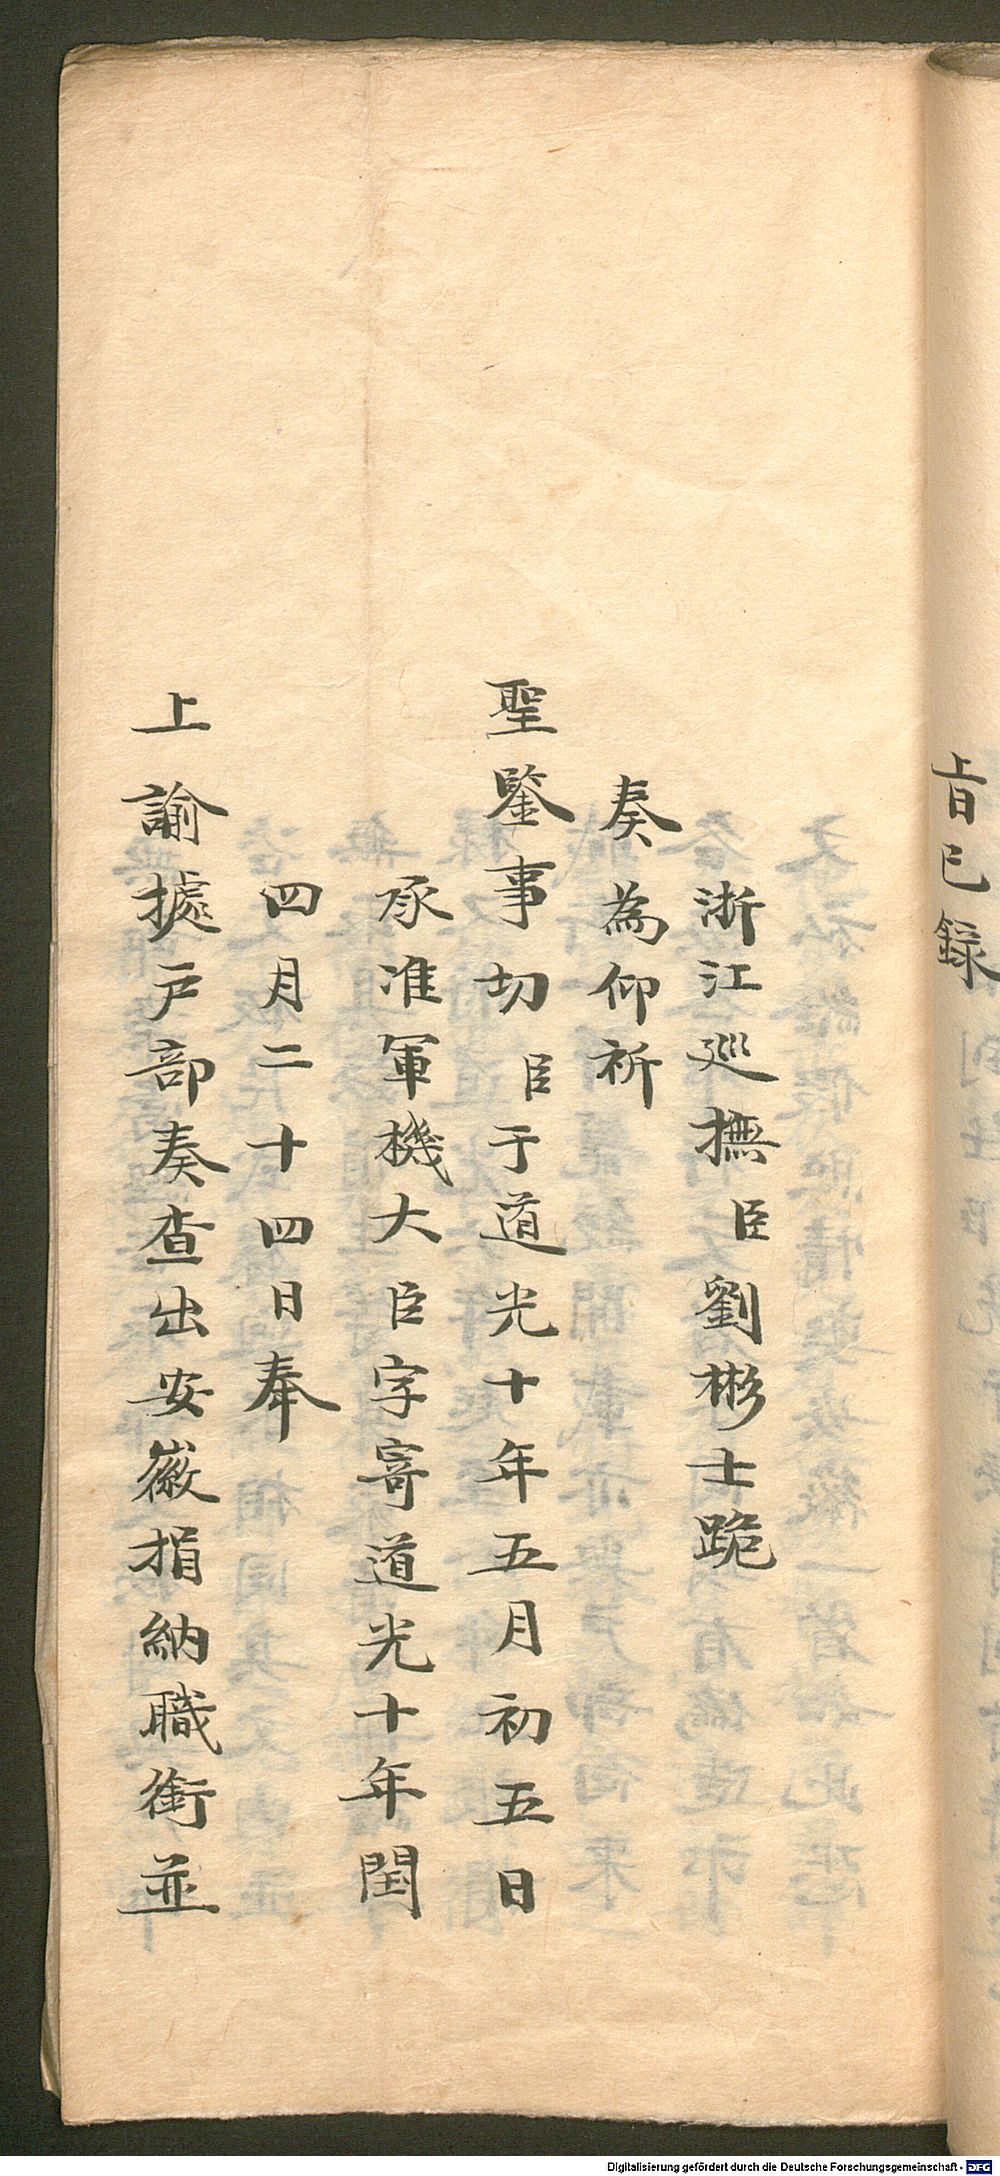 上旨已錄
浙江巡撫臣劉彬士跪
奏為仰祈
聖鑒事切臣于道光十年五月初五日
承准軍機大臣字寄道光十年閏
四月二十四日奉
上諭據戶部奏查出安徽捐納職銜並
Digitalisierung gefördert durch die Deutsche Forschungsgemeinschaft - DFG